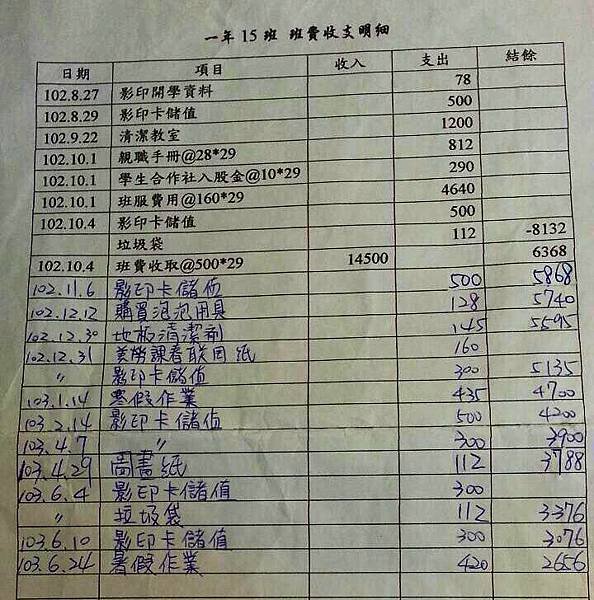 一年 15 班 班費收支明細
日期 項目 收入 支出 結餘
102.8.27 影印開學資料 78
102.8.29 影印卡儲值 500
102.9.22 清潔教室 1200
102.10.1 親職手冊@28*29 812
102.10.1 學生合作社入股金@10*29 290
102.10.1 班服費用@160*29 4640
102.10.4 影印卡儲值 500
垃圾袋 112 -8132
102.10.4 班費收取@500*29 14500 6368
102.11.6 影印卡儲值 500 5868
102.12.12 購買泡泡用具 128 5740
102.12.30 地板清潔劑 145 5595
102.12.31 美勞課春联用紙 160
〃 影印卡儲值 300 5135
103.1.14 寒假作業 435 4700
103.2.14 影印卡儲值 500 4200
103.4.7 〃 300 3900
103.4.29 圖畫紙 112 3788
103.6.4 影印卡儲值 300
〃 垃圾袋 112 3376
103.6.10 影印卡儲值 300 3076
103.6.24 暑假作業 420 2656